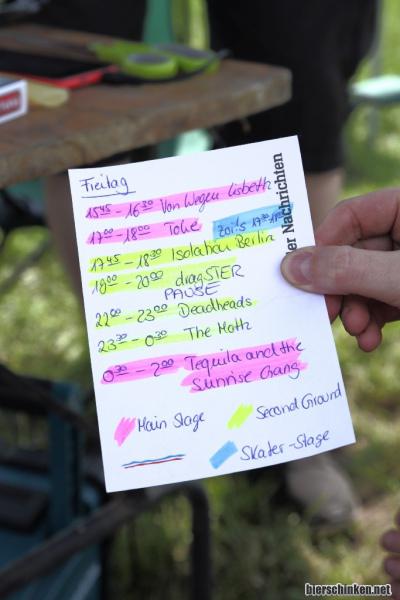 Freitag
15⁴⁵ – 16³⁰ Von Wegen Lisbeth
17⁰⁰ – 18⁰⁰ Tobe
17⁴⁵ – 18³⁰ Isolation Berlin
19⁰⁰ – 20⁰⁰ dragSTER
PAUSE
22⁰⁰ – 23⁰⁰ Deadheads
23³⁰ – 0³⁰ The Moth
0³⁰ – 2⁰⁰ Tequila and the
Sunrise Gang
Main Stage
Second Ground
Skater-Stage
er Nachrichten
bierschinken.net